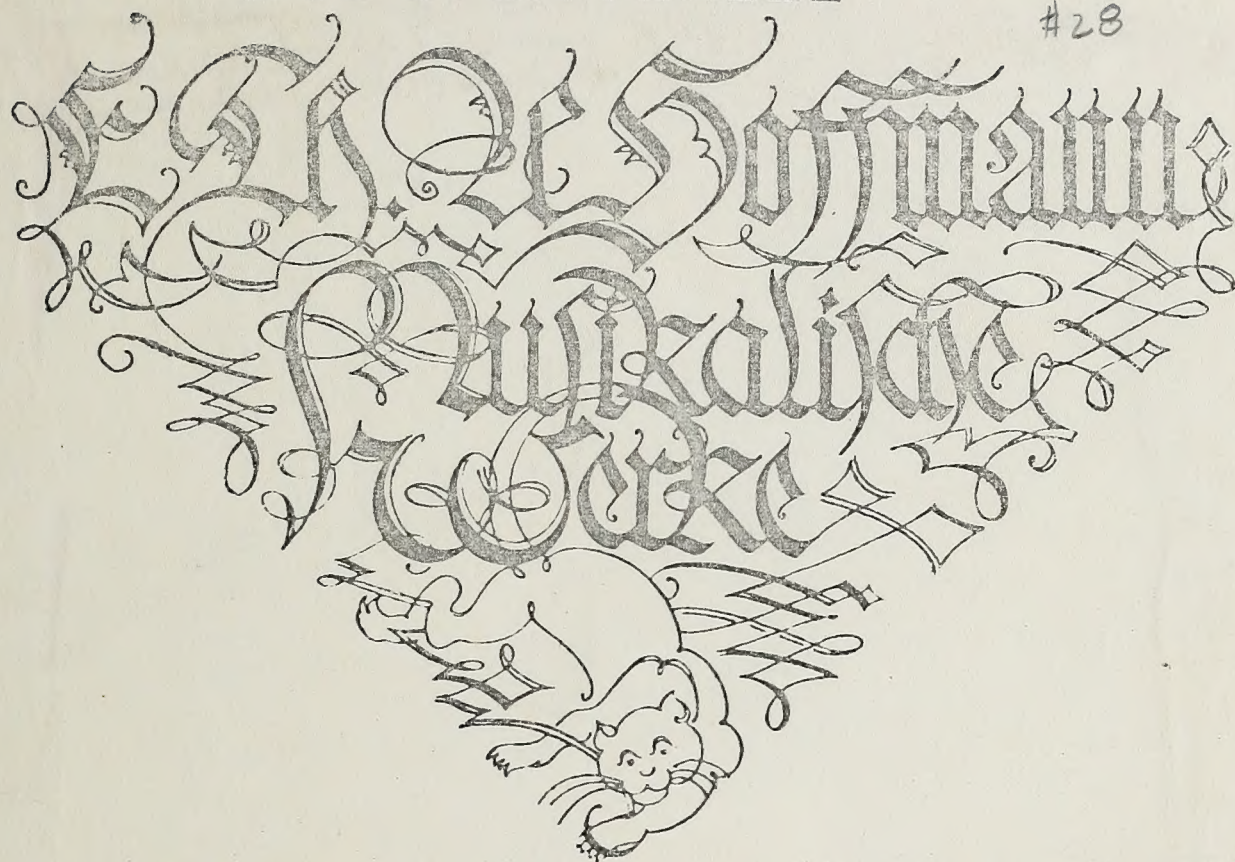 #28
E. Th. A Hoffmann
Musikalische
Werke